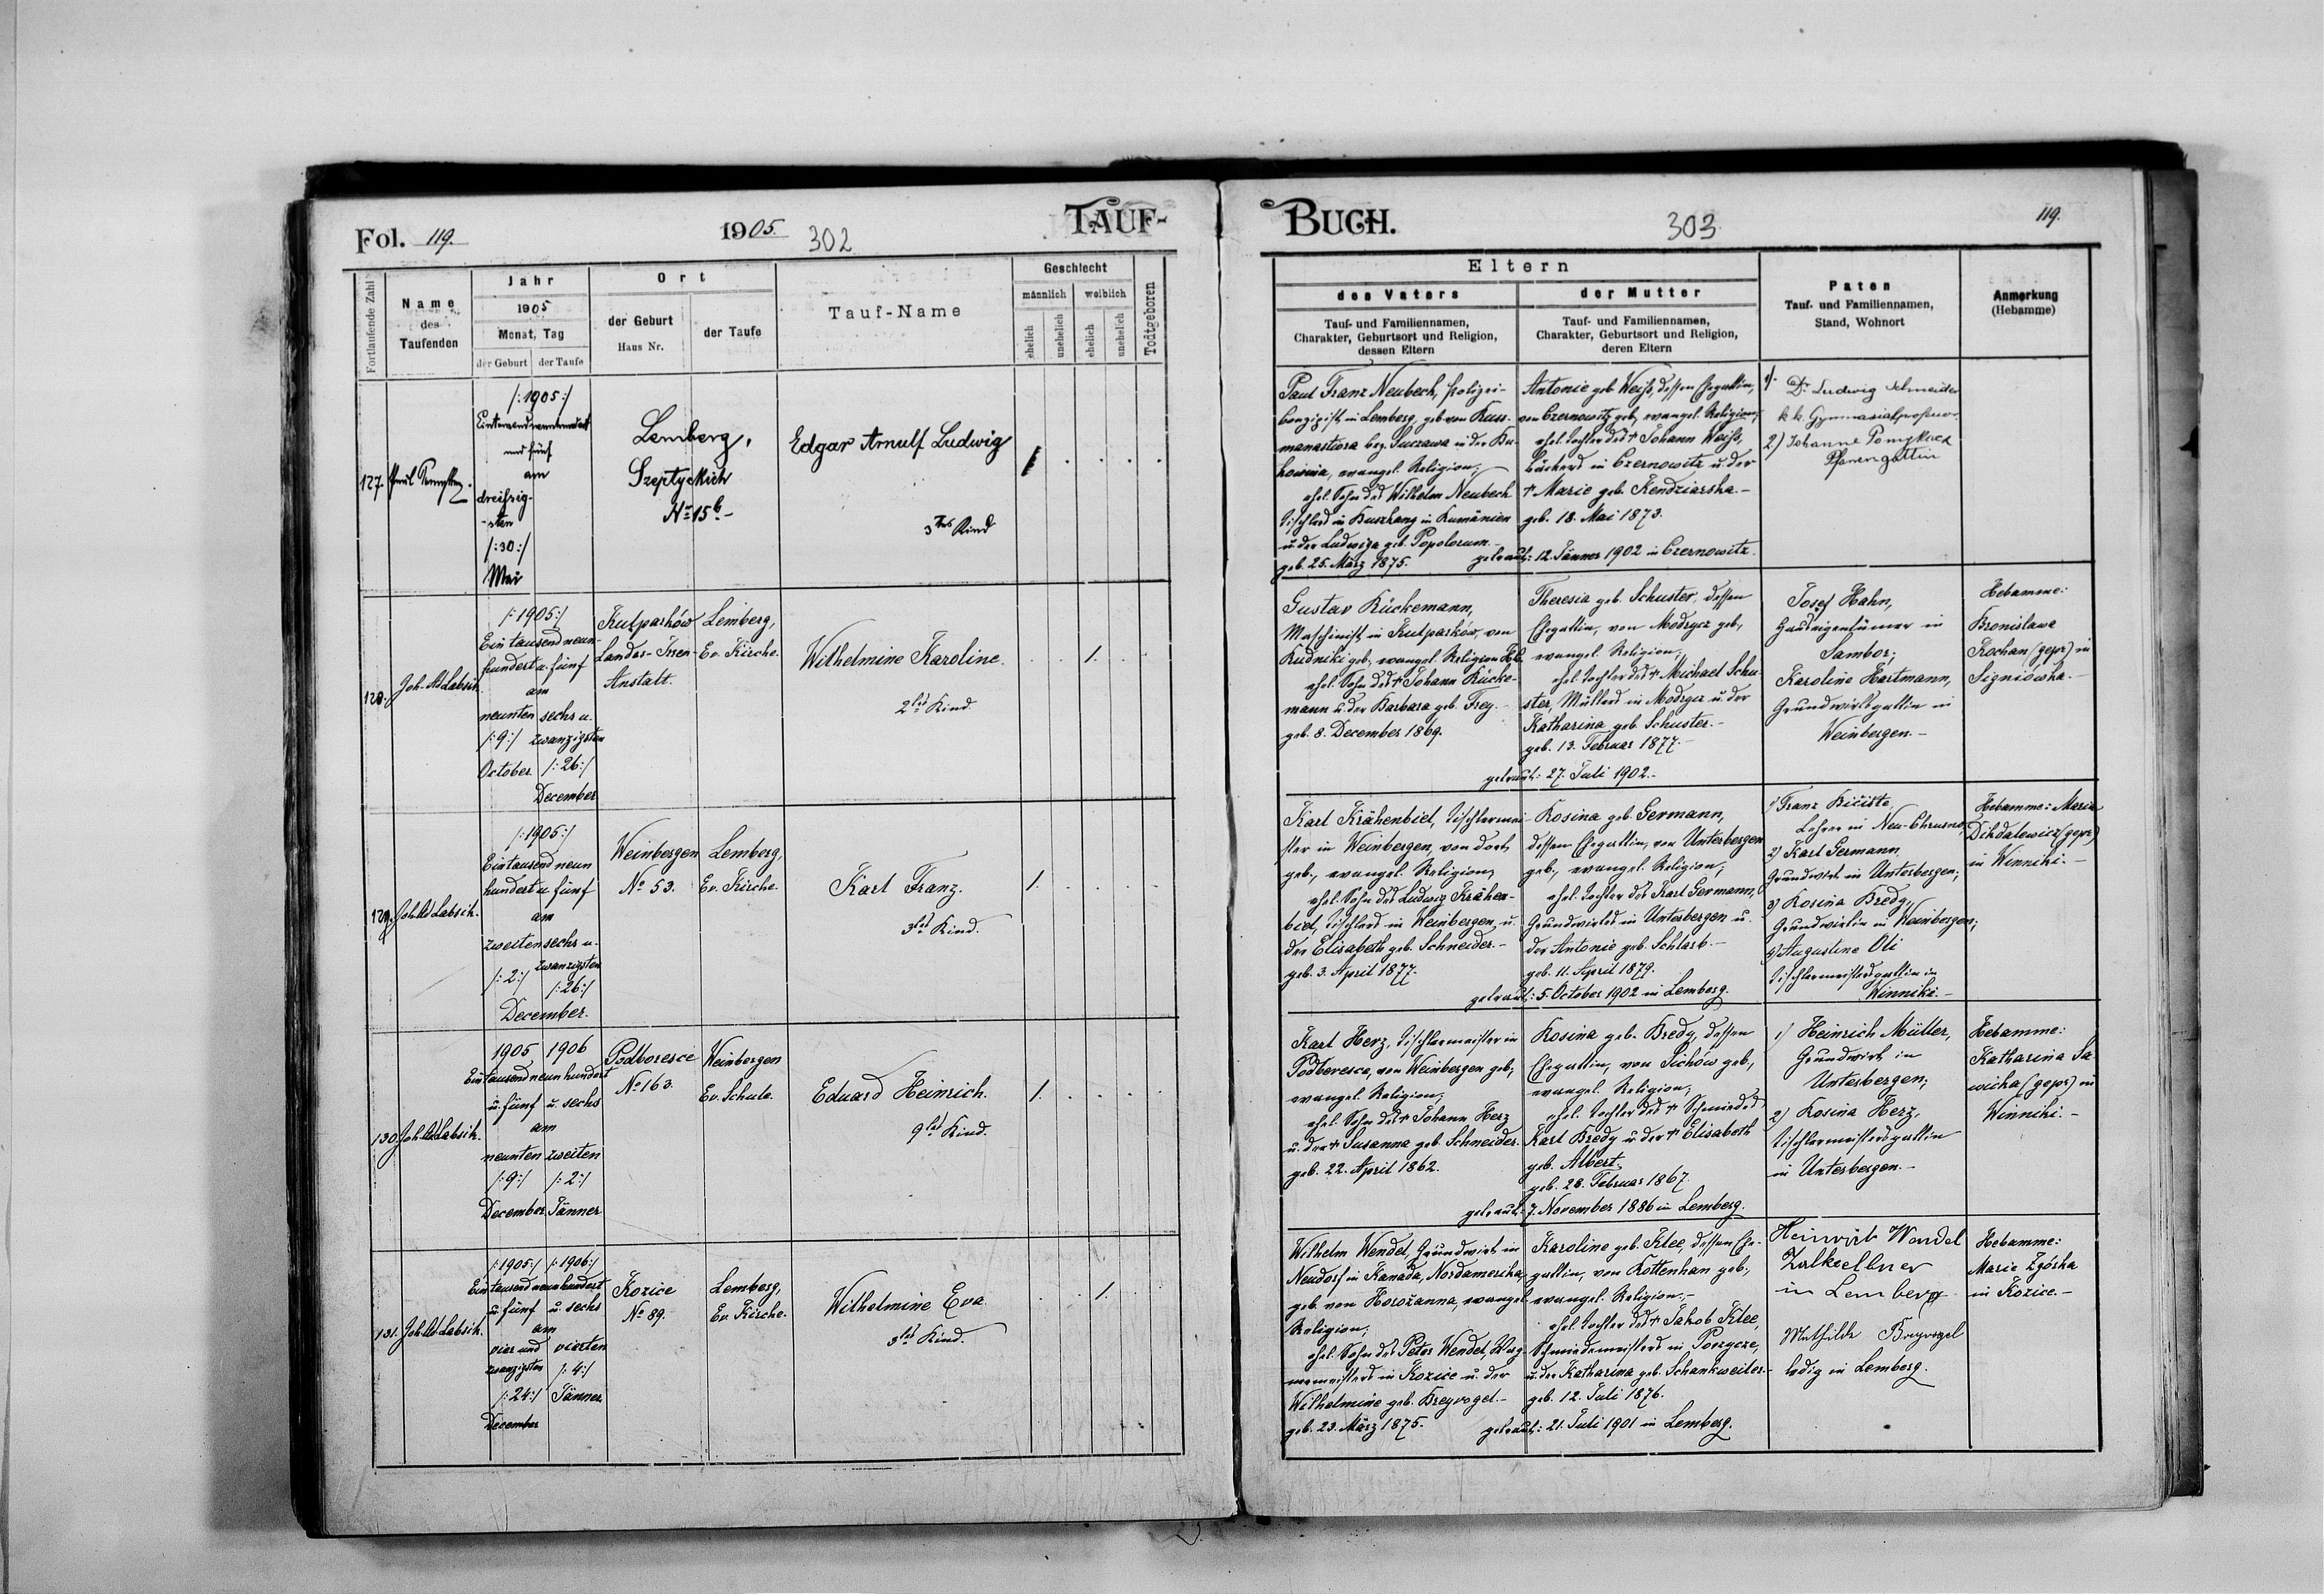 Fol. 119.
1905.
302
TAUF-
Fortlaufende Zahl
Name
des
Taufenden
Jahr
1905
Monat, Tag
der Geburt
der Taufe
Ort
der Geburt
Haus Nr.
der Taufe
Tauf-Name
Geschlecht
männlich
weiblich
ehelich
unehelich
ehelich
unehelich
Todtgeboren
127.
/:1905:/
und fünf
am
dreißig-
-sten
/:30:/
Mai
Lemberg,
Szeptyckich
No 15b.-
Edgar Arnulf Ludwig
3tes Kind
128.
Joh. Ad Labsik
/:1905:/
Ein tausend neun-
hundert u. fünf
am
neunten sechs u.
/:9:/ zwanzigsten
October /:26:/
December
Kulparków
Landes-Irren-
Anstalt.
Lemberg,
Ev. Kirche.
Wilhelmine Karoline.
2tes Kind.
1.
129.
Joh. Ad Labsik.
/:1905:/
Ein tausend neun
hundert u. fünf
am
zweiten sechs u.
/:2:/ zwanzigsten
/:26:/
December.
Weinbergen
No 53.
Lemberg,
Ev. Kirche.
Karl Franz.
3tes Kind.
1.
130.
Joh. Ad Labsik.
1905 1906
Ein tausend neun hundert
u. fünf u. sechs
am
neunten zweiten
/:9:/ /:2:/
December Jänner
Podboresce
No 163.
Weinbergen
Ev. Schule.
Eduard Heinrich.
9tes Kind.
1.
131.
Joh. Ad Labsik.
/:1905:/ /:1906:/
Ein tausend neun hundert
u. fünf u. sechs
am
vier und vierten
zwanzigsten /:4:/
/:24:/ Jänner
December
Kozice
No 89.
Lemberg,
Ev. Kirche.
Wilhelmine Eva.
3tes Kind.
1.
BUCH.
303
119.
Eltern
des Vaters
Tauf- und Familiennamen,
Charakter, Geburtsort und Religion,
dessen Eltern
der Mutter
Tauf- und Familiennamen,
Charakter, Geburtsort und Religion,
deren Eltern
Paten
Tauf- und Familiennamen,
Stand, Wohnort
Anmerkung
(Hebamme)
Paul Franz Neubech, Polizei-
Conzipist in Lemberg, geb. von Kuss-
manastiora bez. Suczawa in der Bu-
kowina, evangel. Religion;
ehel. Sohn des Wilhelm Neubech
Tischlers in Huszhang in Rumänien
u. der Ludwiga geb. Popolorum.-
geb. 25. März 1875.
Antonie geb. Weiß, dessen Ehegattin,
von Czernowitz geb., evangel. Religion;
ehel. Tochter des † Johann Weiß,
Bäckers in Czernowitz u. der
† Marie geb. Kendziarska.-
geb. 18. Mai 1873.
getraut: 12. Jänner 1902 in Czernowitz.
1) Dr. Ludwig Schneider
k. k. Gymnasialprofessor.
2) Johanne Pomykacz
Pfarrersgattin
Gustav Rückemann,
Maschinist in Kulparków, von
Rudniki geb., evangel. Religion HB,
ehel. Sohn des † Johann Rücke-
mann u. der Barbara geb. Frey.-
geb. 8. December 1869.
Theresia geb. Schuster, dessen
Ehegattin, von Modrycz geb.,
evangel. Religion;
ehel. Tochter des † Michael Schu-
ster, Müllers in Modrycz u. der
Katharina geb. Schuster.-
geb. 13. Februar 1877.-
getraut: 27. Juli 1902.-
Josef Hahn,
Hauseigentümer in
Sambor;
Karoline Hartmann,
Grundwirtsgattin in
Weinbergen.-
Hebamme:
Bronislawa
Kochan (gepr) in
Signiówka.-
Karl Krähenbiel, Tischlermei-
ster in Weinbergen, von dort
geb., evangel. Religion;
ehel. Sohn des Ludwig Krähen-
biel, Tischlers in Weinbergen u.
der Elisabeth geb. Schneider.-
geb. 3. April 1877.
Rosina geb. Germann,
dessen Ehegattin, von Unterbergen
geb., evangel. Religion;
ehel. Tochter des Karl Germann,
Grundwirts in Unterbergen u.
der Antonie geb. Schlarb.-
geb. 11. April 1879.
getraut: 5. October 1902 in Lemberg.
1) Franz
Lehrer in Neu-Chrusno;
2) Karl Germann,
Grundwirt in Unterbergen;
3) Rosina Bredy,
Grundwirtin in Weinbergen;
4) Augustine Oli
Tischlermeistersgattin in
Winniki.-
Hebamme: Maria
Dikdalewicz (gepr)
in Winniki.-
Karl Herz, Tischlermeister in
Podberesce, von Weinbergen geb.,
evangel. Religion;
ehel. Sohn des † Johann Herz
u. der † Susanna geb. Schneider.
geb. 22. April 1862.
Rosina geb. Bredy, dessen
Ehegattin, von Sichów geb.,
evangel. Religion;
ehel. Tochter des † Schmiedes
Karl Bredy u. der † Elisabeth
geb. Albert.
geb. 28. Februar 1867.
getraut: 7. November 1886 in Lemberg.
1) Heinrich Müller,
Grundwirt in
Unterbergen;
2) Rosina Herz,
Tischlermeistersgattin
in Unterbergen.-
Hebamme:
Katharina Sa
wicka (gepr) in
Winniki.-
Wilhelm Wendel, Grundwirt in
Neudorf in Kanada, Nordamerika,
geb. von Horożanna, evangel.
Religion;
ehel. Sohn des Peter Wendel, Wag-
nermeisters in Kozice u. der
Wilhelmine geb. Breyvogel.-
geb. 23. März 1875.
Karoline geb. Klee, dessen Ehe-
gattin, von Rottenhan geb.,
evangel. Religion;-
ehel. Tochter des † Jakob Klee,
Schmiedemeisters in Porzycze,
u. der Katharina geb. Schankweiler.-
geb. 12. Juli 1876.
getraut: 21. Juli 1901 in Lemberg.
Heinrich Wendel
Zalkellner
in Lemberg
Mathilde Breyvogel
ledig in Lemberg.
Hebamme:
Marie Zgórska
in Kozice.-